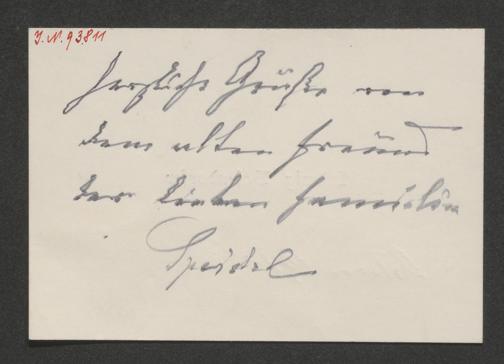 J. N. 93811
herzliche Grüße von
dem alten Freund
der lieben Familie
Speidel